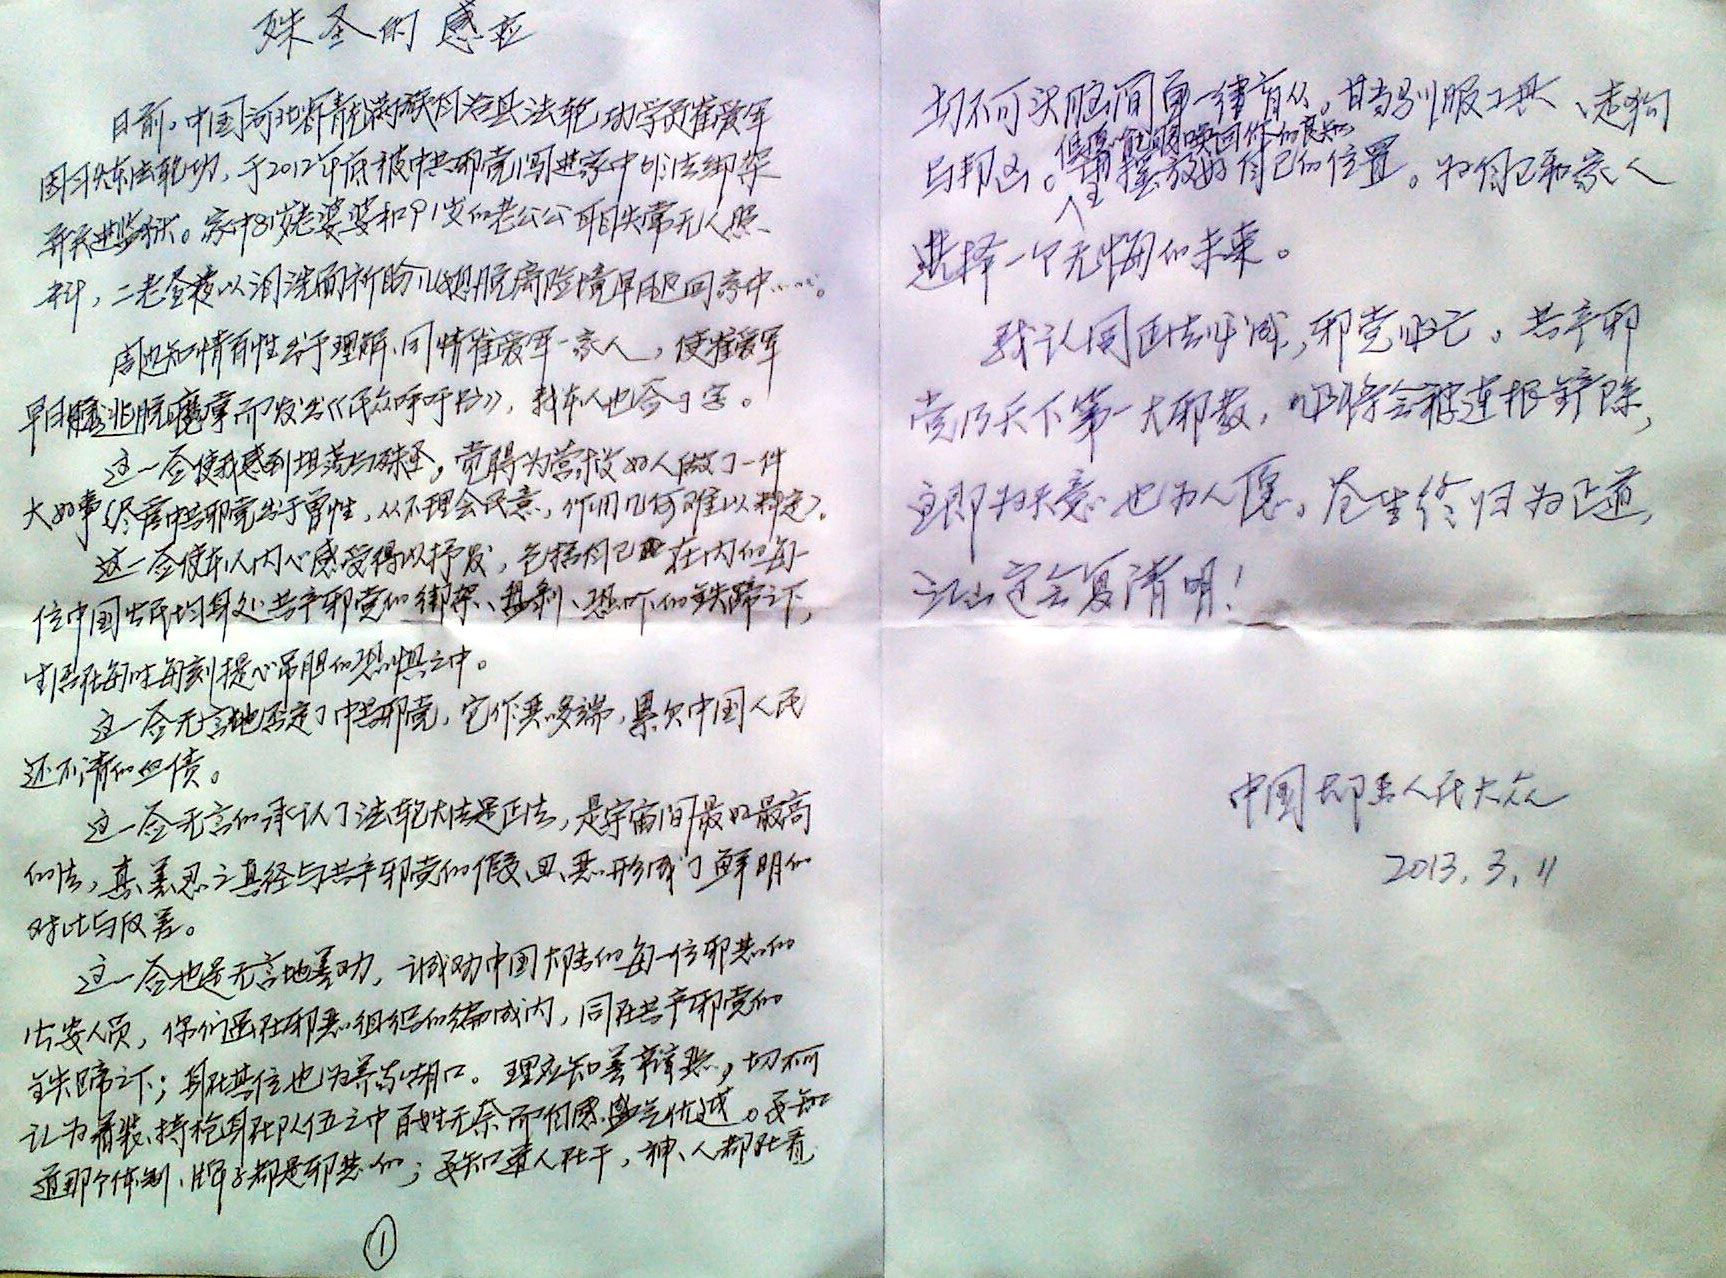 殊圣的感应
日前，中国河北省青龙满族自治县法轮功学员崔爱军
因习炼法轮功，于2012年底被中共邪党闯进家中非法绑架
并关进监狱。家中81岁老婆婆和91岁的老公公耳目失常无人照
料，二老昼夜以泪洗面祈盼儿媳脱离险境早日返回家中……。
周边知情百姓出于理解、同情崔爱军一家人，使崔爱军
早日逃脱魔掌而发出《民众呼吁书》，我本人也签了字。
这一签使我感到坦荡与殊圣，觉得为营救好人做了一件
大好事（尽管中共邪党出于兽性，从不理会民意，作用几何难以料定）。
这一签使本人内心感受得以抒发，包括自己在内的每一
位中国公民均身处共产邪党的绑架、恐吓的铁蹄之下，
生活在每时每刻提心吊胆的恐惧之中。
这一签无言地否定了中共邪党，它作恶多端，累欠中国人民
还不清的血债。
这一签无言的承认了法轮大法是正法，是宇宙间最好最高
的法，真、善、忍之真经与共产邪党的假、恶形成了鲜明的
对比与反差。
这一签也是无言地善劝，诚劝中国大陆的每一位邪恶的
公安人员，你们虽在邪恶组织的编成内，同在共产邪党的
铁蹄之下；身在其位也为养家糊口。理应知善辩恶，切不可
认为着装、持枪身在队伍之中百姓无奈而自感优越。要知
道那个体制、牌子都是邪恶的；要知道人在干，神、人都在看，
①
切不可头脑简单一律盲从。甘当驯服工具、走狗
与帮凶。但愿能够唤回你的良知，
摆放好自己的位置。为自己和家人
选择一个无悔的未来。
我认同正法必成，邪党必亡。共产邪
党乃天下第一大邪教，必将会被连根铲除，
这即为天意也为人愿。苍生终归为正道，
江山定会复清明！
中国大陆人民大众
2013.3.11